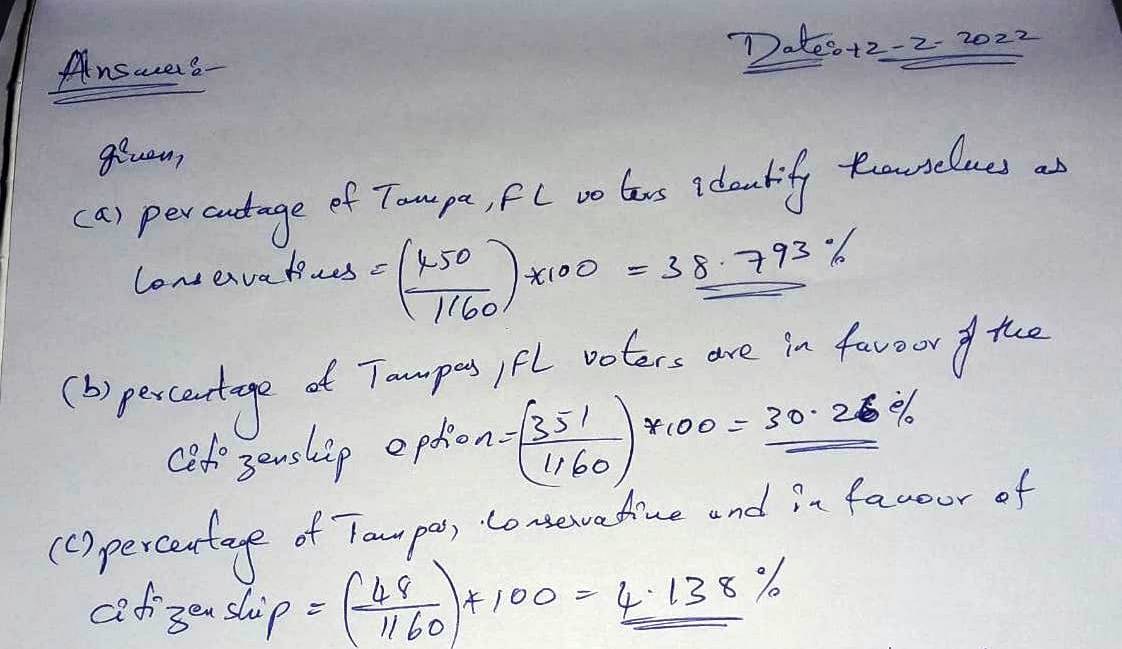 Answer:-
Date:-12-2-2022
given,
(a) percentage of Tampa, FL voters identify themselves as
Conservatives = (450/1160) *100 = 38.793%
(b) percentage of Tampa, FL voters are in favoor of the
citizenship option = (351/1160) *100 = 30.26%
(c) percentage of Tampa, conservative and in favour of
citizenship = (48/1160) *100 = 4.138%